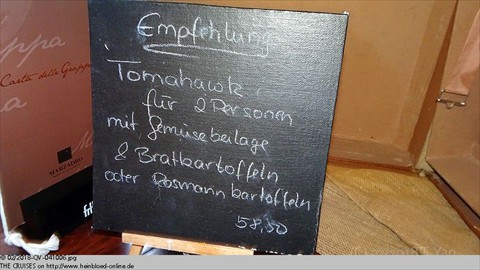 Empfehlung
Tomahawk
für 2 Personen
mit Gemüsebeilage
& Bratkartoffeln
oder Rosmarinkartoffeln
58,50
Carta delle Grappe
MARZADRO
© 02/2018-QV-D41006.jpg
THE CRUISES on http://www.heinbloed-online.de